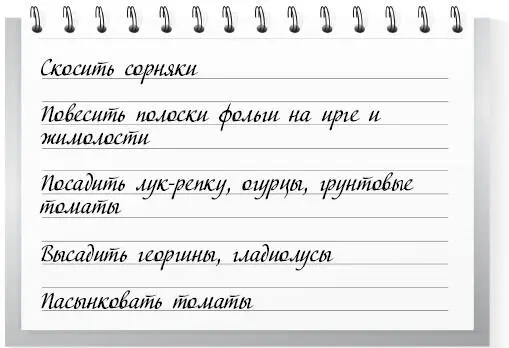 Скосить сорняки
Повесить полоски фольги на ирге и
жимолости
Посадить лук-репку, огурцы, грунтовые
томаты
Высадить георгины, гладиолусы
Пасынковать томаты